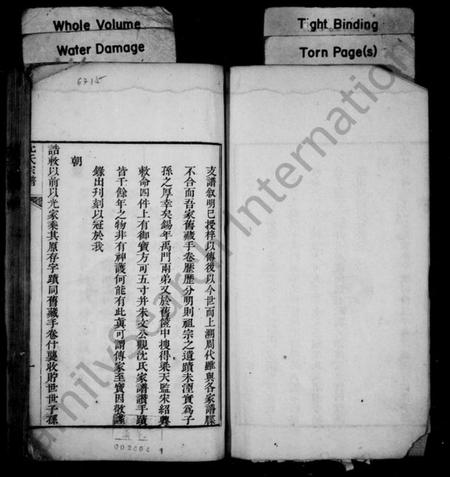 Whole Volume
Water Damage
Tight Binding
Torn Page(s)
6715
支譜叙明已授梓以傳後以今世而上溯周代雖與各家譜牒
不合而吾家舊藏手卷歷歷分明則祖宗之遺蹟未湮實為子
孫之厚幸矣錫年禹門兩弟又於舊篋中搜得梁天監宋紹興
敕命四件上有御寶方可五寸并朱文公觀沈氏家譜讚手蹟
皆千餘年之物非有神護何能有此真可謂傳家至寶因敬謹
錄出刊刻以冠於我
朝
誥敕以前以光家乘其原存字蹟同舊藏手卷什襲收貯世世子孫
氏宗譜
FamilySearch International